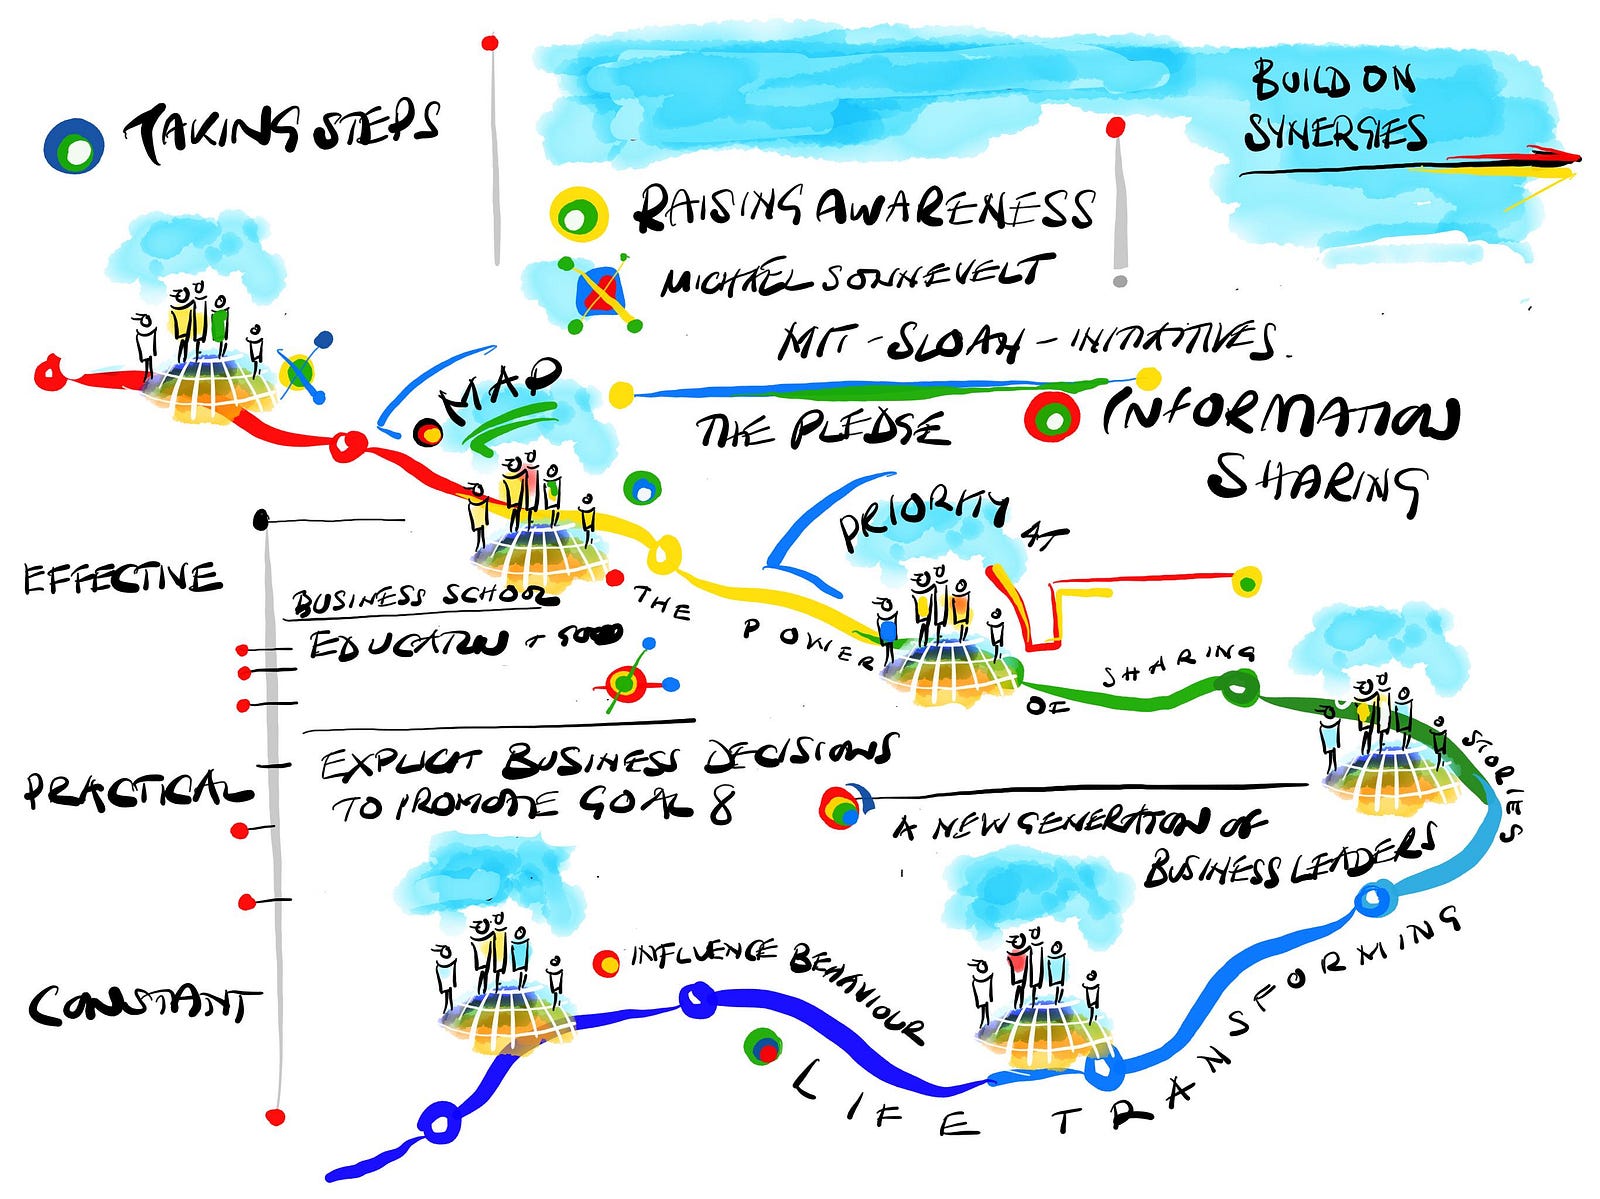 TAKING STEPS
BUILD ON
SYNERGIES
RAISING AWARENESS
MICHAEL SONNEVELT
MIT - SLOAN - INITIATIVES.
MAP
THE PLEDGE
INFORMATION
SHARING
PRIORITY
EFFECTIVE
BUSINESS SCHOOL
EDUCATION +
THE POWER OF SHARING STORIES
EXPLICIT BUSINESS DECISIONS
TO PROMOTE GOAL 8
PRACTICAL
A NEW GENERATION OF
BUSINESS LEADERS
INFLUENCE BEHAVIOUR
CONSTANT
LIFE TRANSFORMING